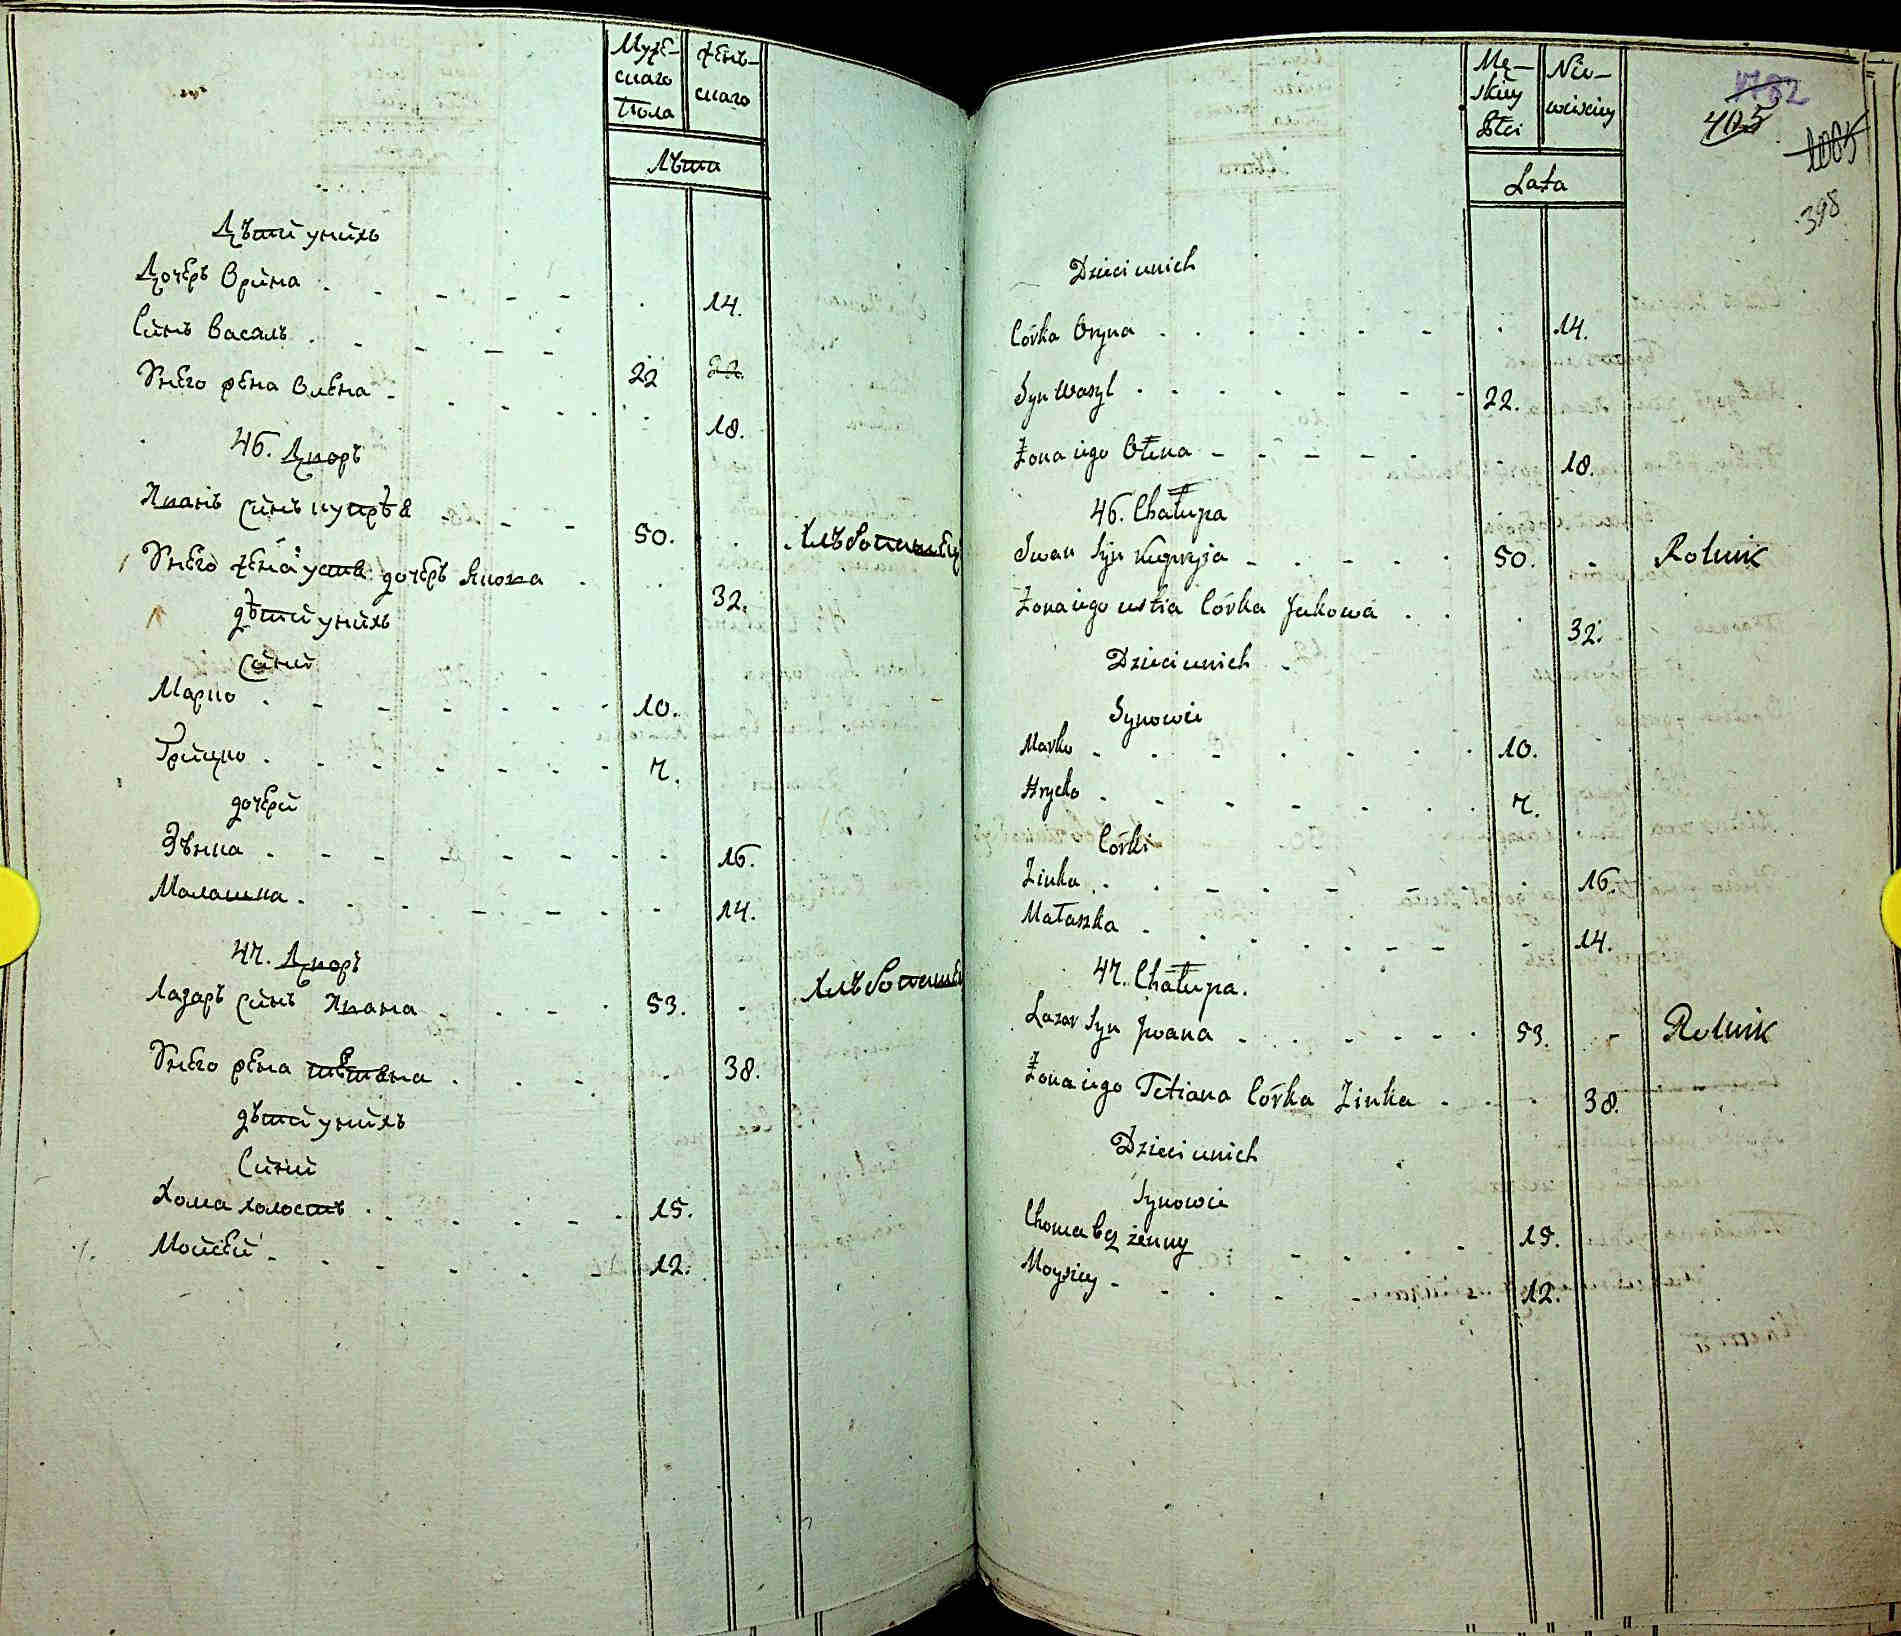 Мужескаго Пола
Женьскаго
Лѣта
Дѣти у нихъ
Дочерь Орина 14.
Синъ Васаль 22 22
У него жена Олена 18.
46. Дворъ
Иванъ Синъ купрѣя 50. Хлѣбопашец
У него жена устя дочерь Якова 32.
дѣти у нихъ
Сини
Марко 10.
Грицко 7.
дочери
Зѣнка 16.
Малашка 14.
47. Дворъ
Лазарь Синъ Ивана 53. Хлѣбопаше
У него жена тетяна 38.
дѣти у нихъ
Сини
Хома холостъ 15.
Мойсей 12.
Mę-
skiey
Płci
Nie-
wieściey
Lata
405
1005
398
Dzieci unich
Córka Oryna 14.
Syn Wasyl 22.
Żona iego Ołena 18.
46. Chałupa
Iwan Syn Kupryja 50. Rolnik
Żona iego ustia Córka Jakowa 32.
Dzieci unich
Synowie
Marko 10.
Hrycko 7.
Córki
Zinka 16.
Małaszka 14.
47. Chałupa.
Lazar Syn Jwana 53. Rolnik
Żona iego Tetiana Córka Zinka 38.
Dzieci unich
Synowie
Choma bez żenny 15.
Moysiey 12.